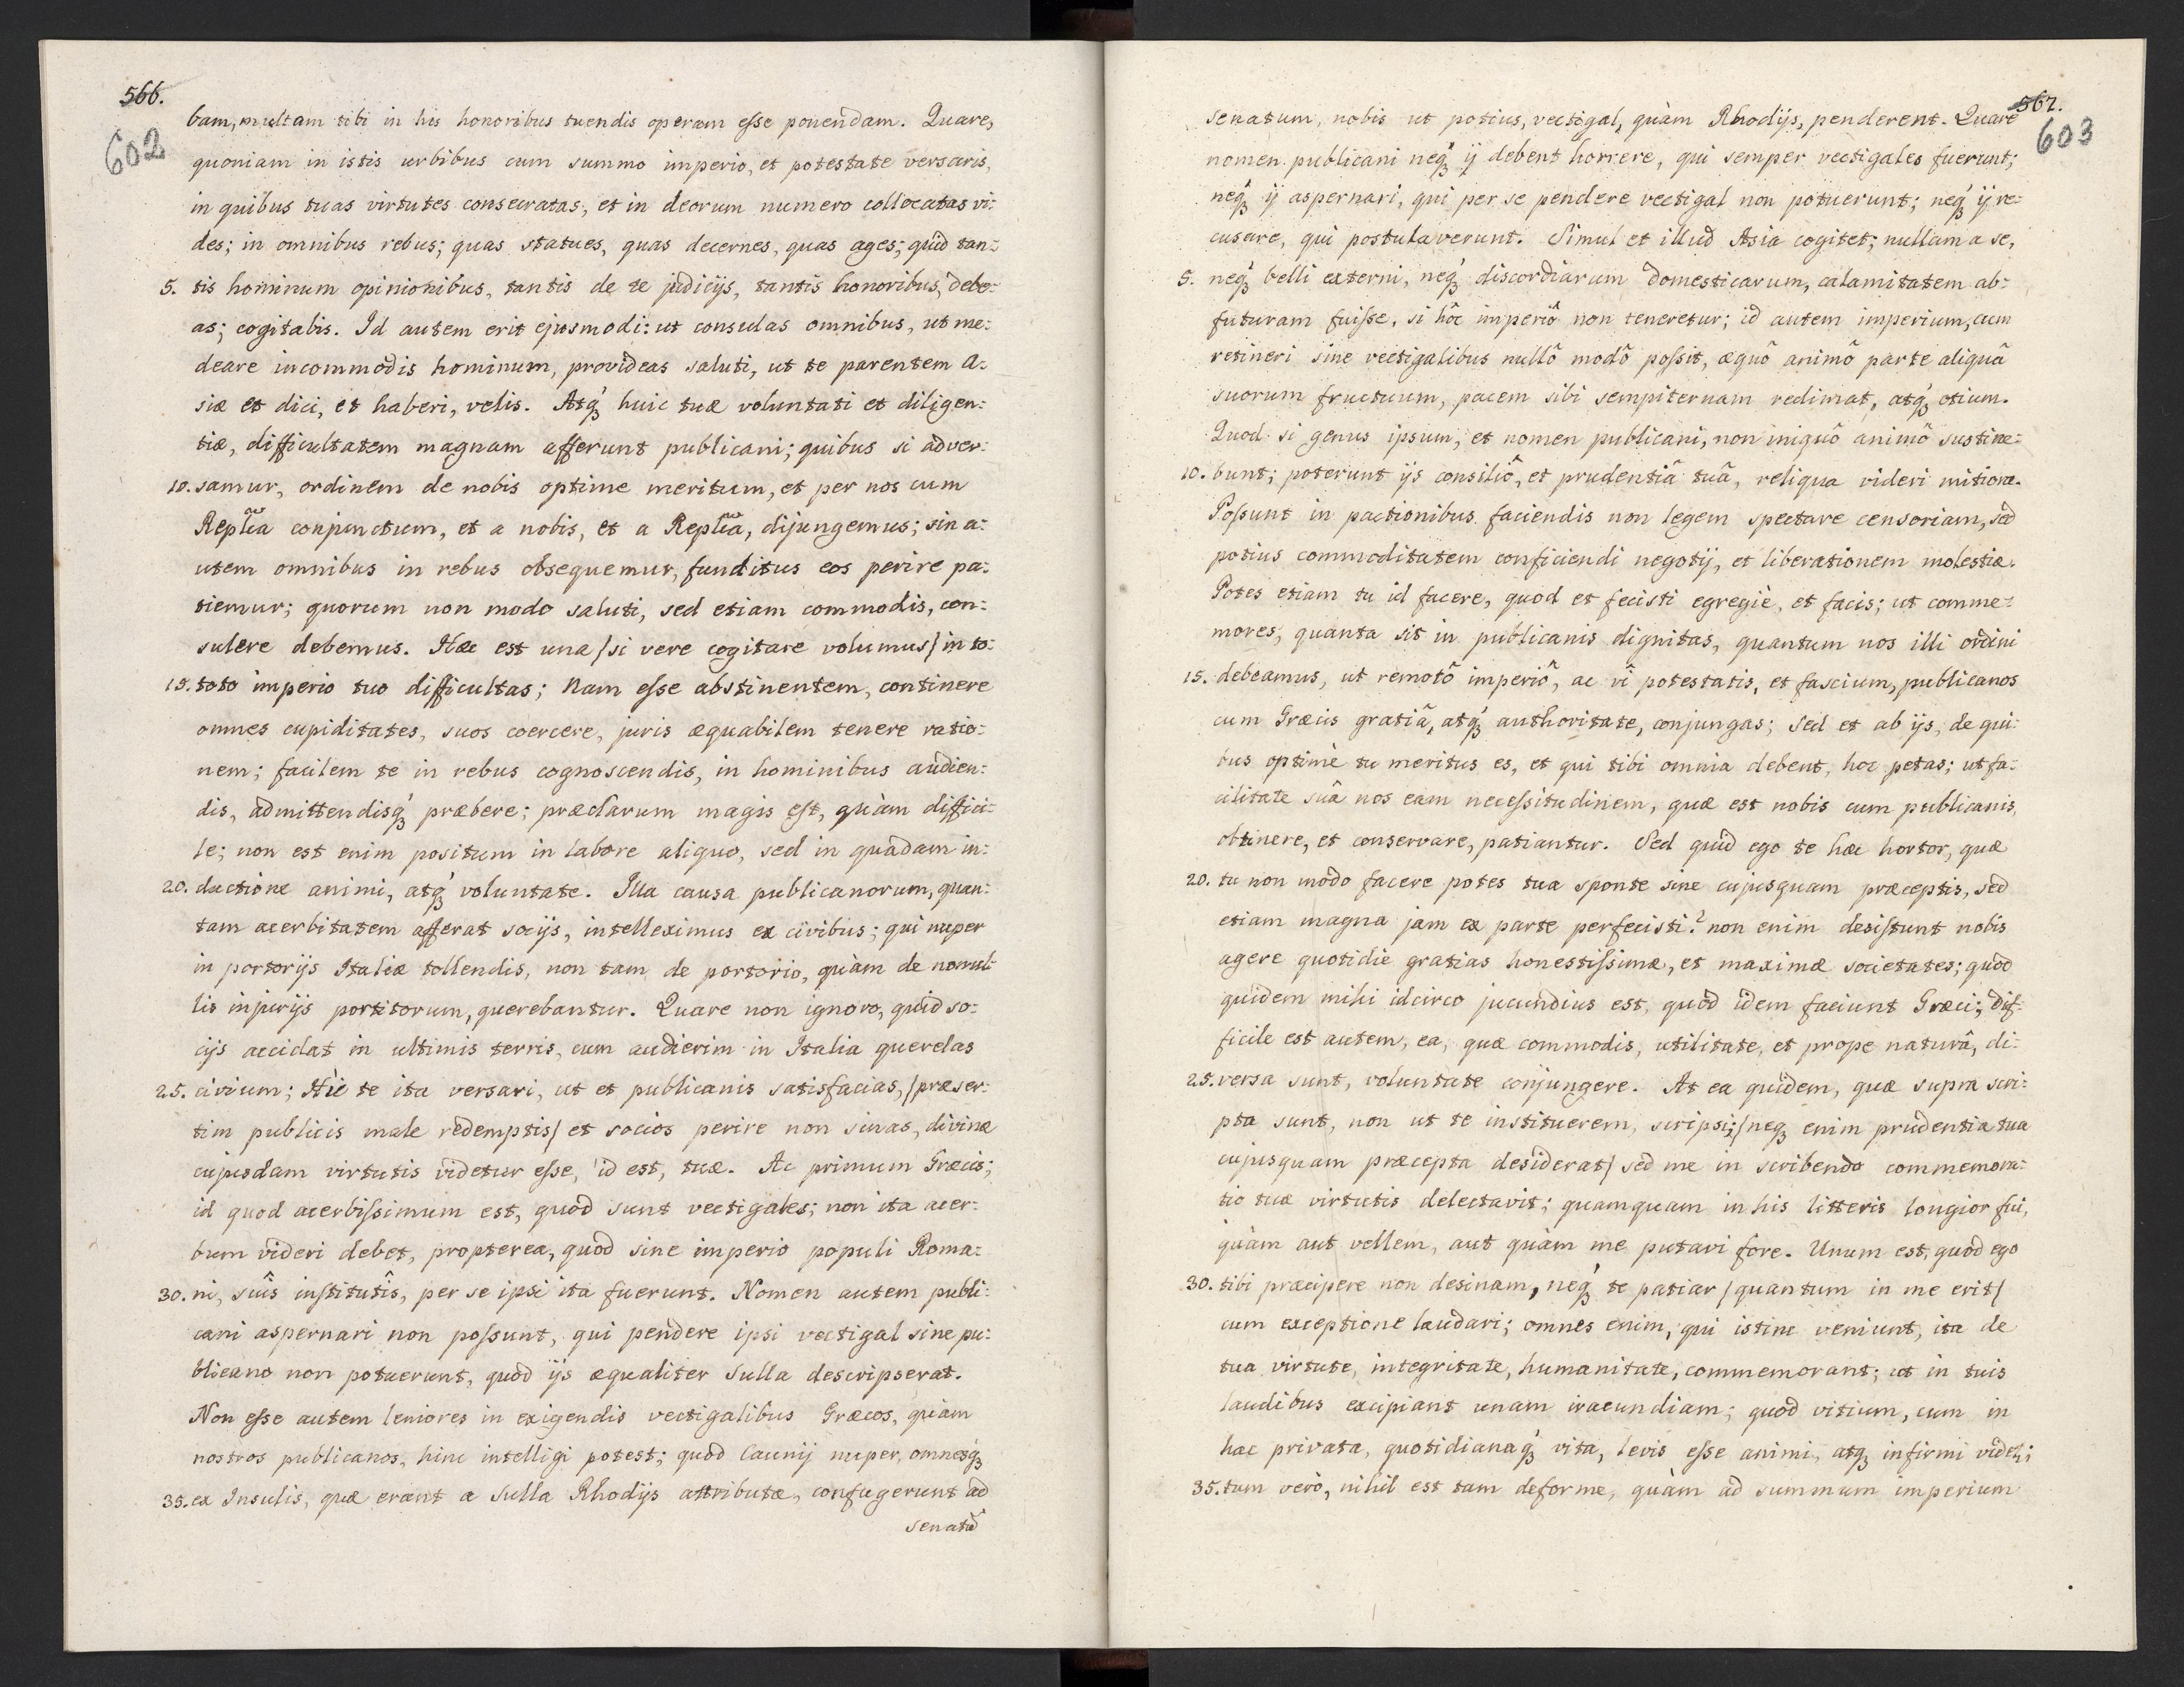 566.
602
bam, multam tibi in his honoribus tuendis operam esse ponendam. Quare,
quoniam in istis urbibus cum summo imperio, et potestate versaris,
in quibus tuas virtutes consecratas, et in deorum numero collocatas vi:
des; in omnibus rebus; quas statues, quas decernes, quas ages; quid tan:
5. tis hominum opinionibus, tantis de te judicijs, tantis honoribus, debe:
as; cogitabis. Id autem erit ejusmodi: ut consulas omnibus, ut me:
deare incommodis hominum, provideas saluti, ut te parentem A:
siæ et dici, et haberi, velis. Atq́ꝫ huic tuæ voluntati et diligen:
tiæ, difficultatem magnam afferunt publicani; quibus si adver:
10. samur, ordinem de nobis optime meritum, et per nos cum
Replĩca conjunctum, et a nobis, et a Replĩca, dijungemus; sin a:
utem omnibus in rebus obsequemur, funditus eos perire pa:
tiemur; quorum non modo saluti, sed etiam commodis, con:
sulere debemus. Hæc est una /si vere cogitare volumus/ in to:
15. toto imperio tuo difficultas; Nam esse abstinentem, continere
omnes cupiditates, suos coercere, juris æquabilem tenere ratio:
nem; facilem te in rebus cognoscendis, in hominibus audien:
dis, admittendisq́ꝫ præbere; præclarum magis est, quàm diffici:
le; non est enim positum in labore aliquo, sed in quadam in:
20. ductione animi, atq́ꝫ voluntate. Illa causa publicanorum, quan:
tam acerbitatem afferat socijs, intelleximus ex civibus; qui nuper
in portorijs Italiæ tollendis, non tam de portorio, quàm de nonul:
lis injurijs portitorum, querebantur. Quare non ignoro, quid so:
cijs accidat in ultimis terris, cum audierim in Italia querelas
25. civium; Hîc te ita versari, ut et publicanis satisfacias, /præser:
tim publicis male redemptis/ et socios perire non sinas, divinæ
cujusdam virtutis videtur esse, id est, tuæ. Ac primum Græcis;
id quod acerbissimum est, quòd sunt vectigales; non ita acer:
bum videri debet, propterea, quòd sine imperio populi Roma:
30. ni, suîs institutîs, per se ipsi ita fuerunt. Nomen autem publi:
cani aspernari non possunt, qui pendere ipsi vectigal sine pu:
blicano non potuerunt, quòd ijs æqualiter Sulla descripserat.
Non esse autem leniores in exigendis vectigalibus Græcos, quàm
nostros publicanos, hinc intelligi potest; quòd Caunij nuper, omnesq́ꝫ
35. ex Insulis, quæ erant a Sulla Rhodijs attributæ, confugerunt ad
senatũ
567.
603
senatum, nobis ut potius, vectigal, quàm Rhodijs, penderent. Quare
nomen publicani neq́ꝫ ij debent horrere, qui semper vectigales fuerunt;
neq́ꝫ ij aspernari, qui per se pendere vectigal non potuerunt; neq́ꝫ ij re:
cusare, qui postulaverunt. Simul et illud Asia cogitet; nullam a se,
5. neq́ꝫ belli externi, neq́ꝫ discordiarum domesticarum, calamitatem ab:
futuram fuisse, si hôc imperiô non teneretur; id autem imperium, cum
retineri sine vectigalibus nullô modô possit, æquô animô parte aliquâ
suorum fructuum, pacem sibi sempiternam redimat, atq́ꝫ otium.
Quod si genus ipsum, et nomen publicani, non iniquô animô sustine:
10. bunt; poterunt ijs consiliô, et prudentiâ tuâ, reliqua videri mitiora.
Possunt in pactionibus faciendis non legem spectare censoriam, sed
potius commoditatem conficiendi negotij, et liberationem molestiæ.
Potes etiam tu id facere, quod et fecisti egregiè, et facis; ut comme:
mores, quanta sit in publicanis dignitas, quantum nos illi ordini
15. debeamus, ut remotô imperiô, ac vî potestatis, et fascium, publicanos
cum Græcis gratiâ, atq́ꝫ authoritate, conjungas; Sed et ab ijs, de qui:
bus optimè tu meritus es, et qui tibi omnia debent, hoc petas; ut fa:
cilitate suâ nos eam necessitudinem, quæ est nobis cum publicanis,
obtinere, et conservare, patiantur. Sed quid ego te hæc hortor, quæ
20. tu non modo facere potes tua sponte sine cujusquam præceptis, sed
etiam magna jam ex parte perfecisti? non enim desistunt nobis
agere quotidie gratias honestissimæ, et maximæ societates; quod
quidem mihi idcirco jucundius est, quòd idem faciunt Græci; dif:
ficile est autem, ea, quæ commodis, utilitate, et prope naturâ, di:
25. versa sunt, voluntate conjungere. At ea quidem, quæ supra scri:
pta sunt, non ut te instituerem, scripsi; /neq́ꝫ enim prudentia tua
cujusquam præcepta desiderat/ sed me in scribendo commemora:
tio tuæ virtutis delectavit; quamquam in his litteris longior fui,
quàm aut vellem, aut quàm me putavi fore. Unum est, quòd ego
30. tibi præcipere non desinam, neq́ꝫ te patiar /quantum in me erit/
cum exceptione laudari; omnes enim, qui istinc veniunt, ita de
tua virtute, integritate, humanitate, commemorant; ut in tuis
laudibus excipiant unam iracundiam; quod vitium, cum in
hac privata, quotidianaq́ꝫ vita, levis esse animi, atq́ꝫ infirmi videt̃;
35. tum verò, nihil est tam deforme, quàm ad summum imperium